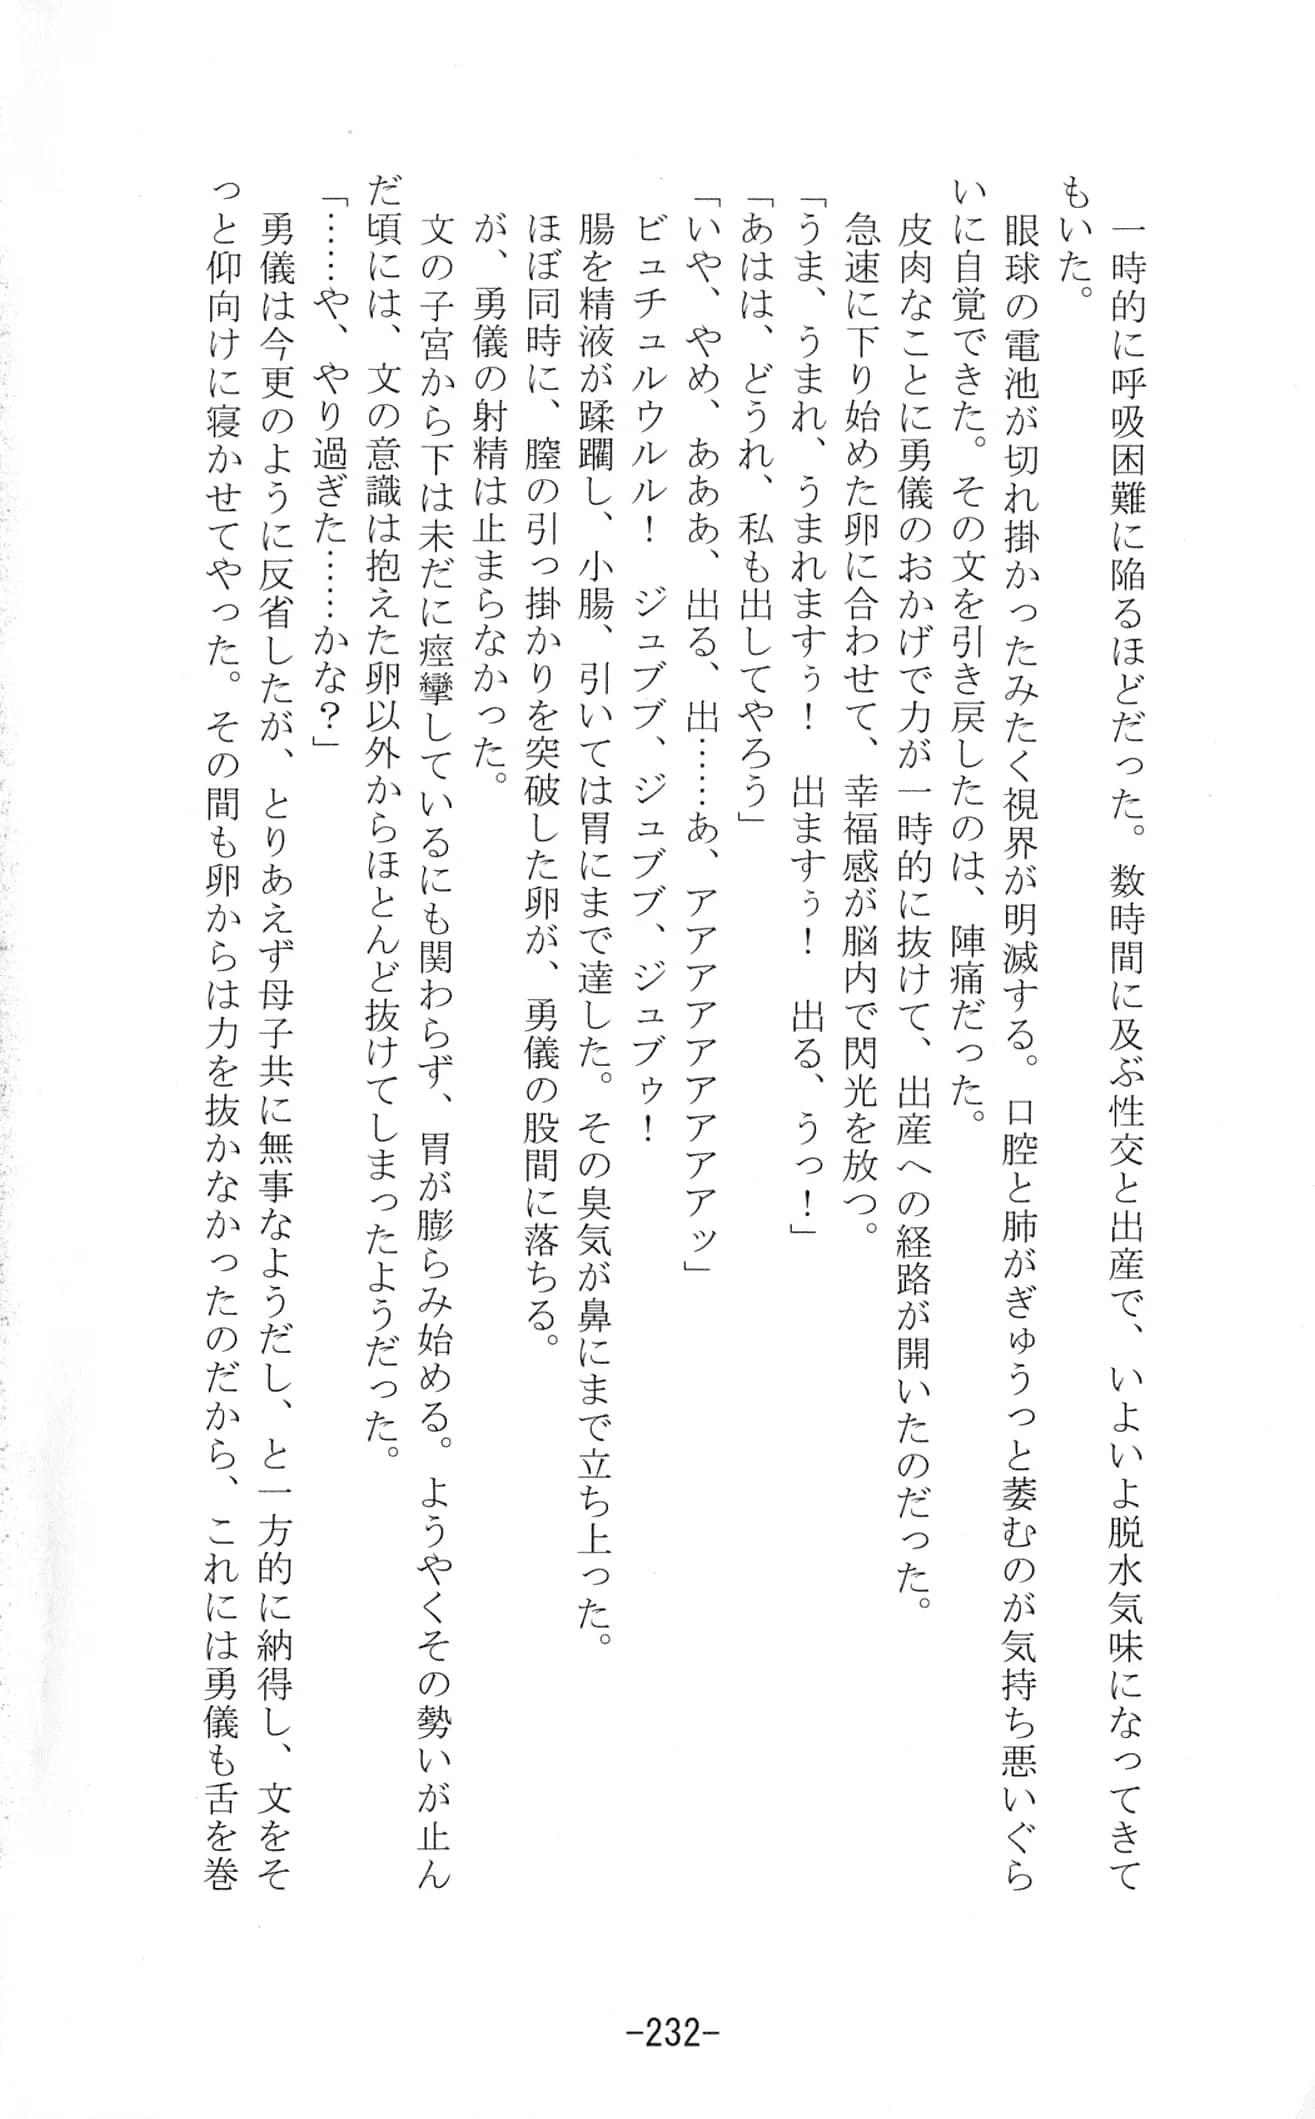 一時的に呼吸困難に陥るほどだった。数時間に及ぶ性交と出産で、いよいよ脱水気味になってきて
もいた。
眼球の電池が切れ掛かったみたく視界が明滅する。口腔と肺がぎゅうっと萎むのが気持ち悪いぐら
いに自覚できた。その文を引き戻したのは、陣痛だった。
皮肉なことに勇儀のおかげで力が一時的に抜けて、出産への経路が開いたのだった。
急速に下り始めた卵に合わせて、幸福感が脳内で閃光を放つ。
「うま、うまれ、うまれますぅ！　出ますぅ！　出る、うっ！」
「あはは、どうれ、私も出してやろう」
「いや、やめ、あああ、出る、出……あ、アアアアアアアアアッ」
ビュチュルウルル！　ジュブブ、ジュブブ、ジュブゥ！
腸を精液が蹂躙し、小腸、引いては胃にまで達した。その臭気が鼻にまで立ち上った。
ほぼ同時に、膣の引っ掛かりを突破した卵が、勇儀の股間に落ちる。
が、勇儀の射精は止まらなかった。
文の子宮から下は未だに痙攣しているにも関わらず、胃が膨らみ始める。ようやくその勢いが止ん
だ頃には、文の意識は抱えた卵以外からほとんど抜けてしまったようだった。
「……や、やり過ぎた……かな？」
勇儀は今更のように反省したが、とりあえず母子共に無事なようだし、と一方的に納得し、文をそ
っと仰向けに寝かせてやった。その間も卵からは力を抜かなかったのだから、これには勇儀も舌を巻
-232-